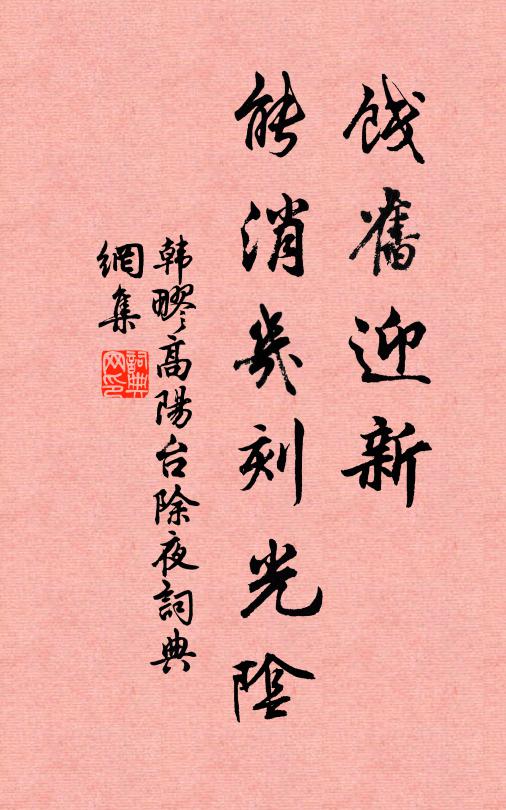 餞舊迎新
能消幾刻光陰
韩疁高陽台除夜詞典
網集
詞典
网印